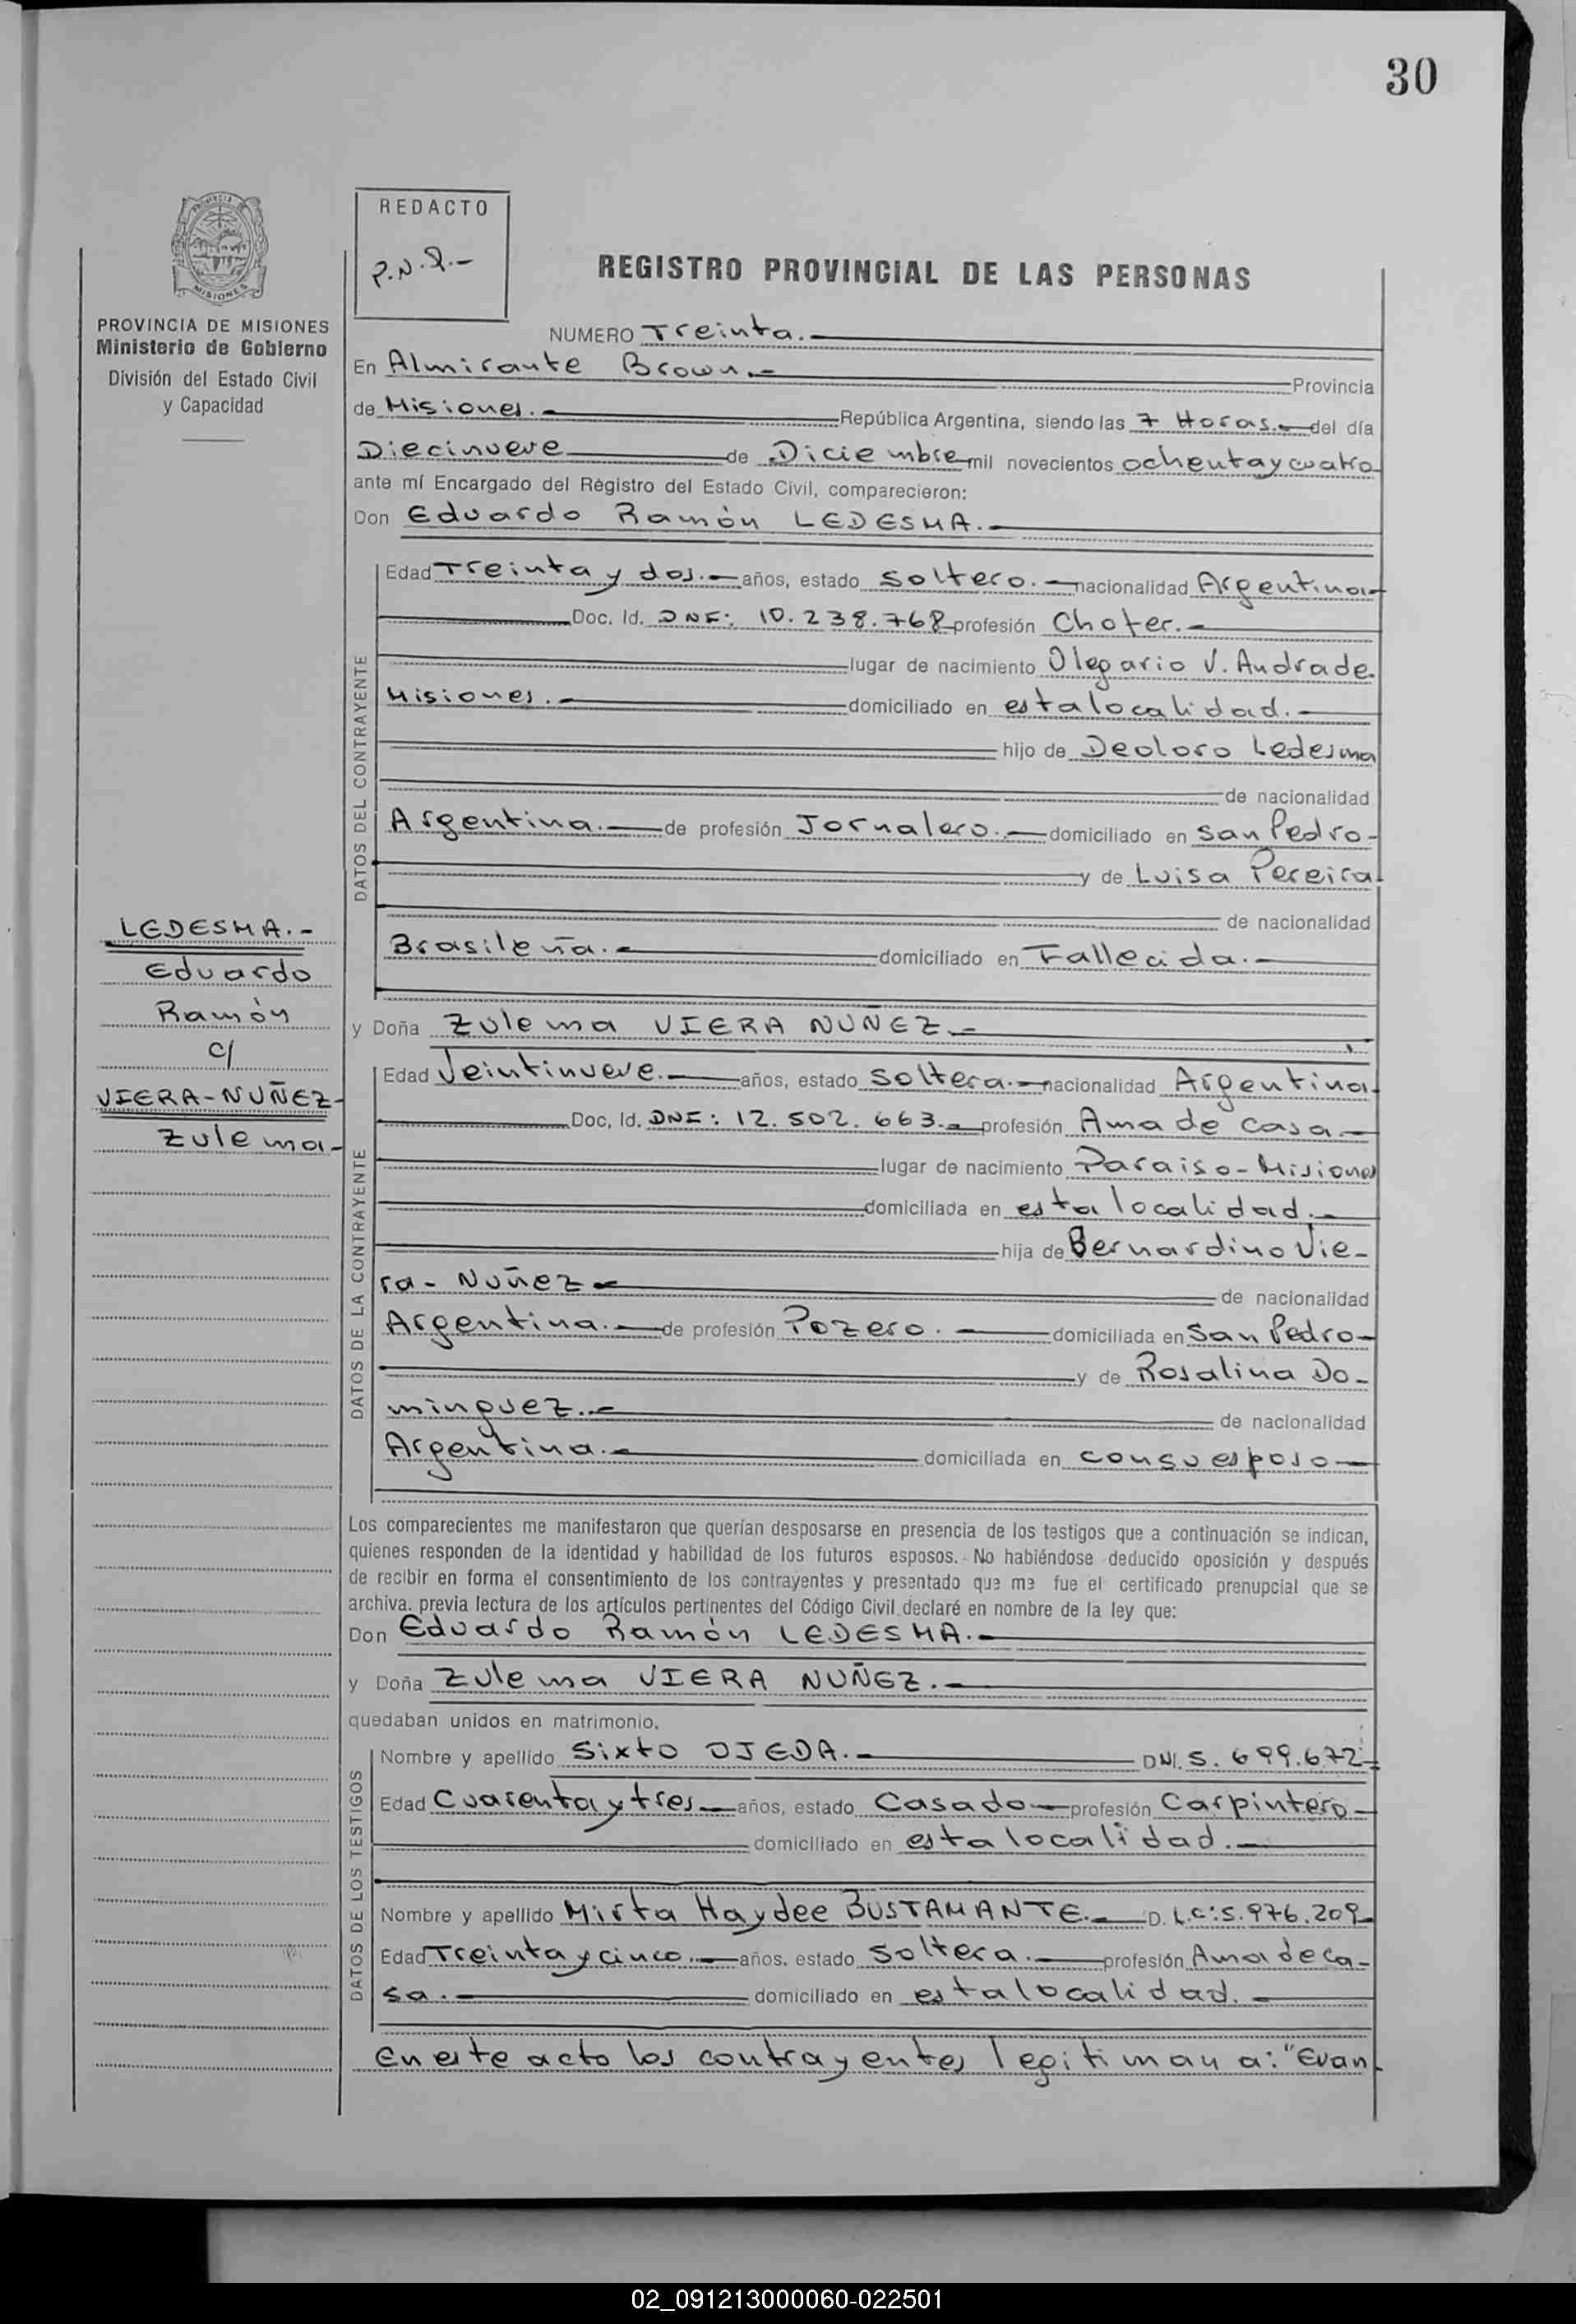 30
REDACTO
P.N.
REGISTRO PROVINCIAL DE LAS PERSONAS
MISIONES
PROVINCIA DE MISIONES
Ministerio de Gobierno
División del Estado Civil
y Capacidad
NUMERO Treinta.-
En Almirante Brown.- Provincia
de Misiones.- República Argentina, siendo las 7 Horas.- del día
Diecinueve de Diciembre mil novecientos ochenta y cuatro
ante mí Encargado del Registro del Estado Civil, comparecieron:
Don Eduardo Ramón LEDESMA.-
DATOS DEL CONTRAYENTE
Edad Treinta y dos.- años, estado Soltero.- nacionalidad Argentina-
Doc. Id. DNI: 10.238.768 profesión Chofer.-
lugar de nacimiento Olegario V. Andrade
Misiones.- domiciliado en esta localidad.-
hijo de Deoloro Ledesma
de nacionalidad
Argentina.- de profesión Jornalero.- domiciliado en San Pedro-
y de Luisa Pereira
de nacionalidad
Brasileña.- domiciliado en Fallecida.-
LEDESMA.-
Eduardo
Ramón
c/
VIERA-NUÑEZ-
Zulema-
y Doña Zulema VIERA NUNEZ.-
DATOS DE LA CONTRAYENTE
Edad Veintinueve.- años, estado Soltera.- nacionalidad Argentina
Doc. Id. DNI: 12.502.663.- profesión Ama de casa.-
lugar de nacimiento Paraiso-Misiones
domiciliada en esta localidad.-
hija de Bernardino Vie-
ra-Nuñez- de nacionalidad
Argentina.- de profesión Pozero.- domiciliada en San Pedro-
y de Rosalina Do-
minguez.- de nacionalidad
Argentina.- domiciliada en con su esposo-
Los comparecientes me manifestaron que querían desposarse en presencia de los testigos que a continuación se indican,
quienes responden de la identidad y habilidad de los futuros esposos. No habiéndose deducido oposición y después
de recibir en forma el consentimiento de los contrayentes y presentado que me fue el certificado prenupcial que se
archiva, previa lectura de los artículos pertinentes del Código Civil declaré en nombre de la ley que:
Don Eduardo Ramón LEDESMA.-
y Doña Zulema VIERA NUÑEZ.-
quedaban unidos en matrimonio.
DATOS DE LOS TESTIGOS
Nombre y apellido Sixto OJEDA.- DNI. 5.699.672-
Edad Cuarenta y tres- años, estado Casado- profesión Carpintero-
domiciliado en esta localidad.-
Nombre y apellido Mirta Haydee BUSTAMANTE.- D. L.C: 5.976.209-
Edad Treinta y cinco.- años, estado Soltera.- profesión Ama de ca-
sa.- domiciliado en esta localidad.-
En este acto los contrayentes legitiman a: "Evan
02_091213000060-022501